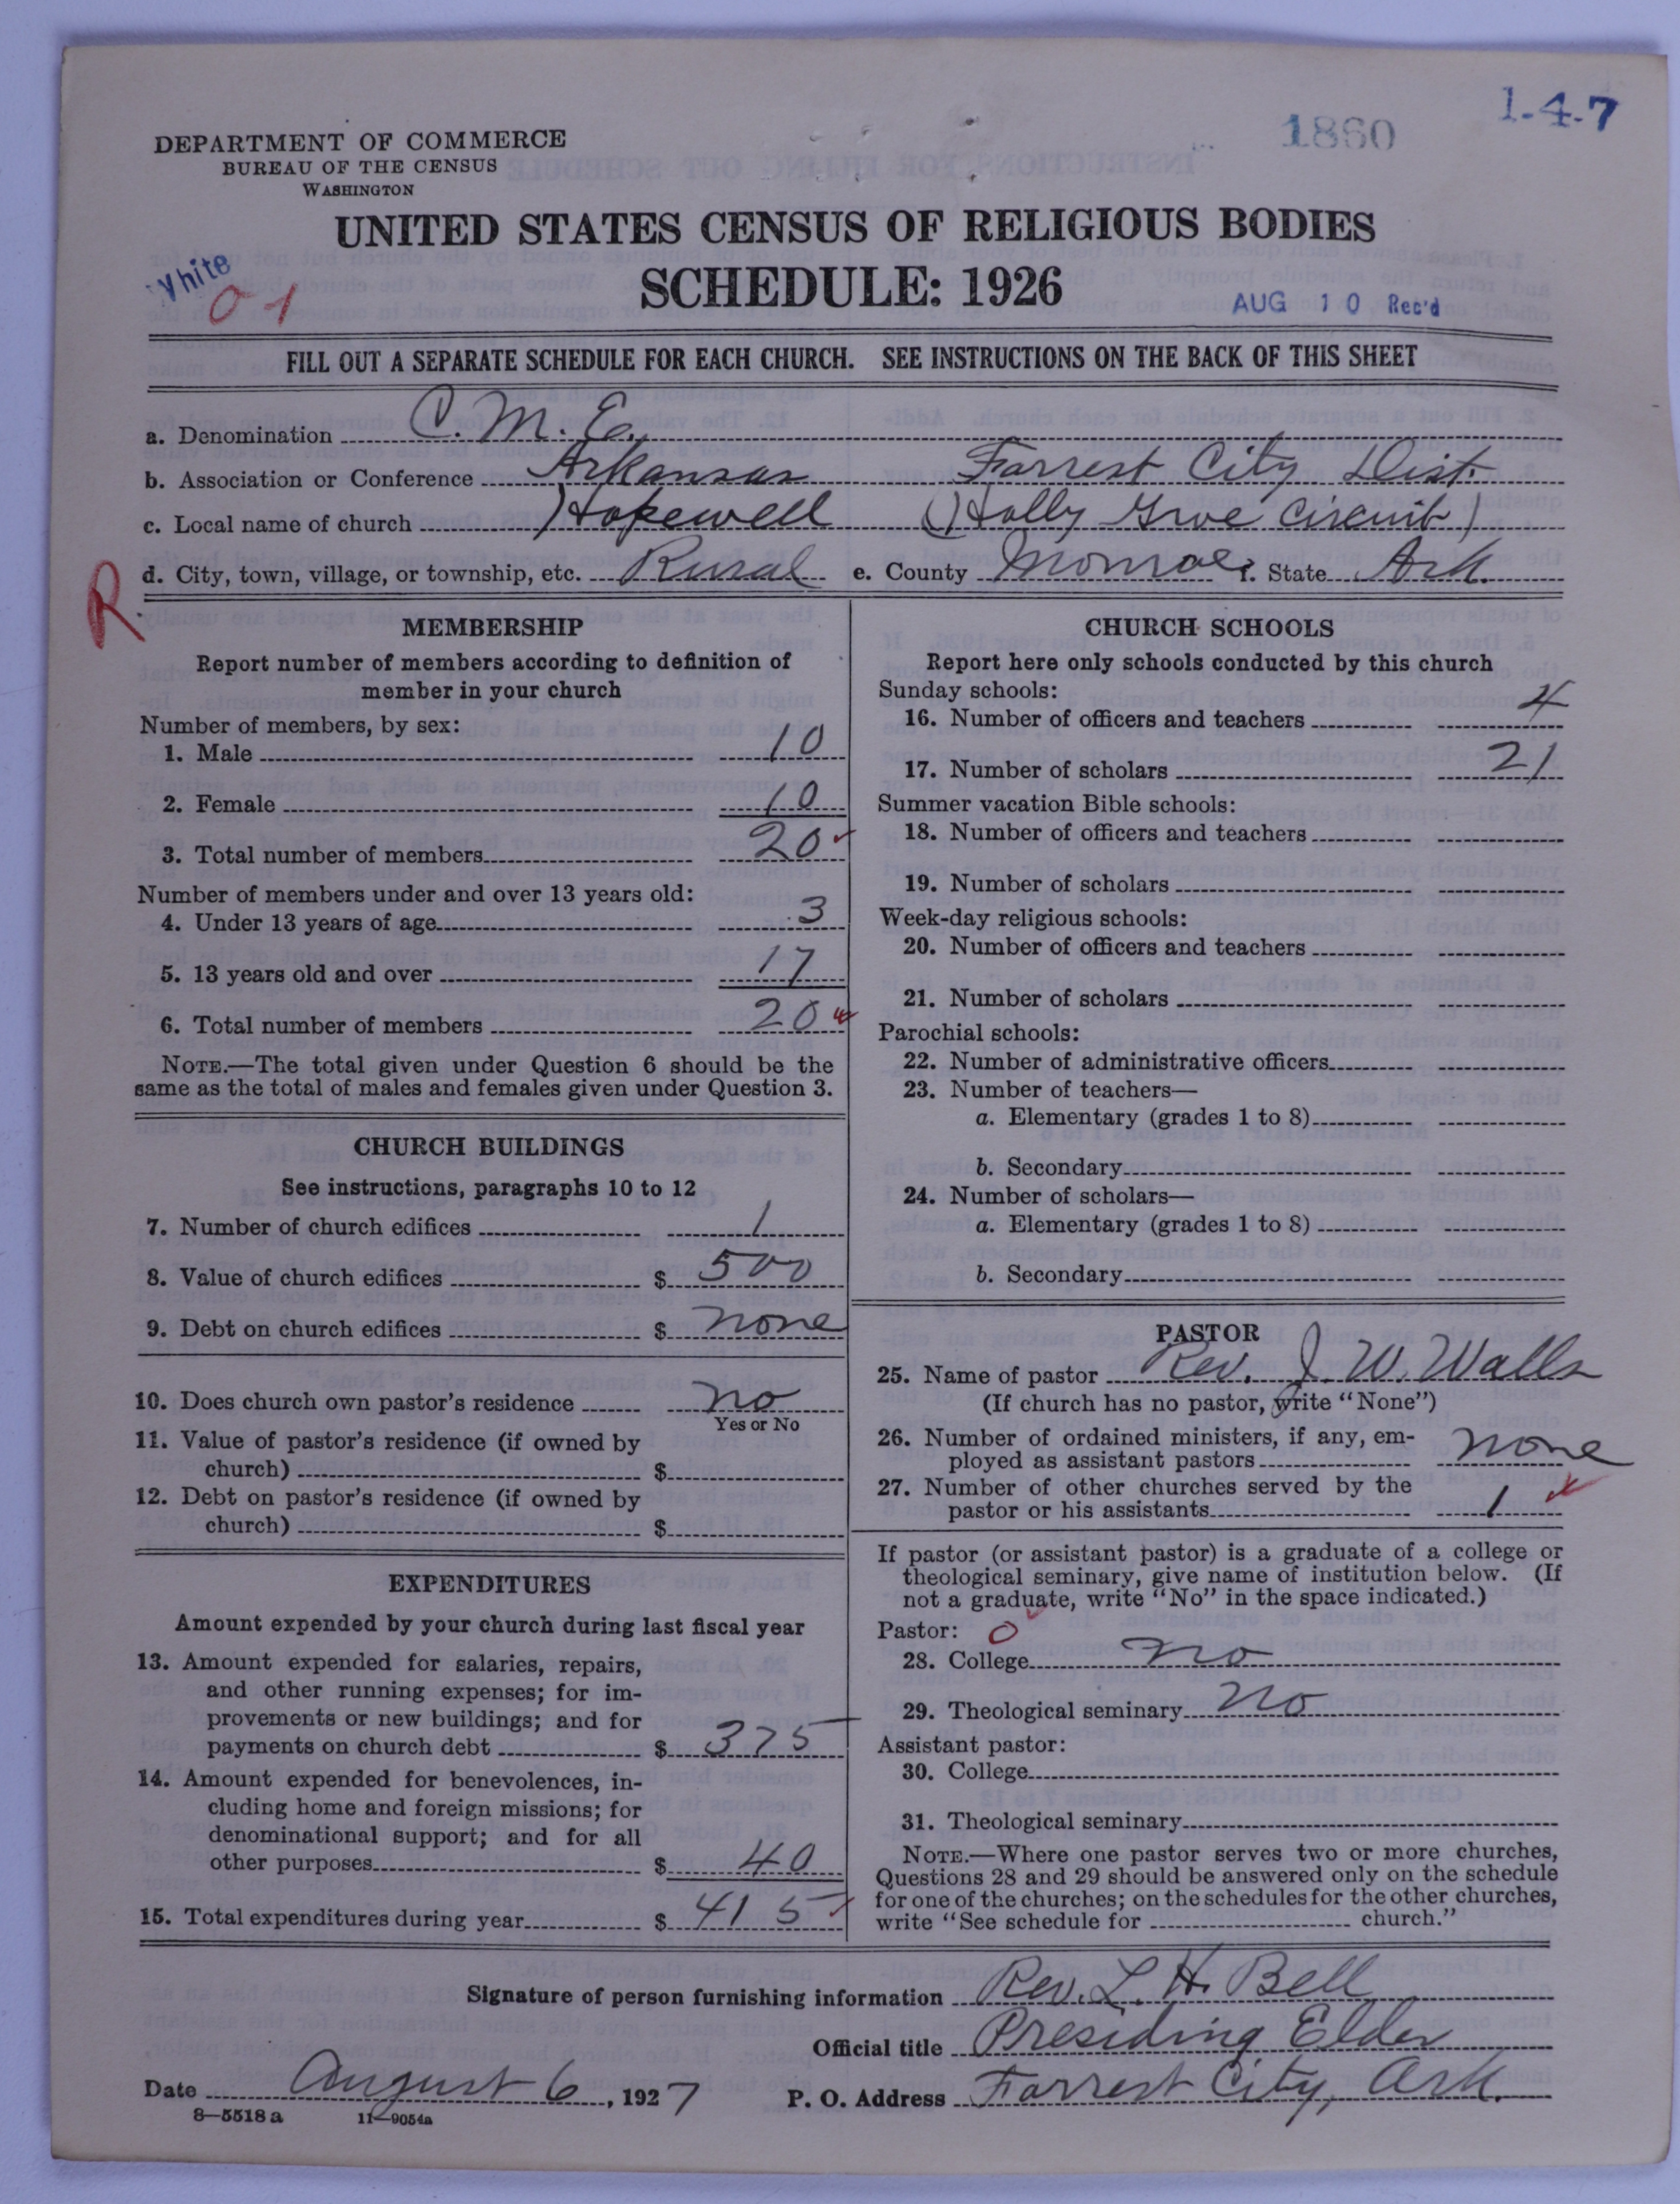 1-4-7
1860
DEPARTMENT OF COMMERCE
BUREAU OF THE CENSUS
WASHINGTON
UNITED STATES CENSUS OF RELIGIOUS BODIES
SCHEDULE: 1926
White
01
AUG 10 Rec'd
FILL OUT A SEPARATE SCHEDULE FOR EACH CHURCH. SEE INSTRUCTIONS ON THE BACK OF THIS SHEET
a. Denomination C. M. E.
b. Association or Conference Arkansas Forrest City Dist.
c. Local name of church Hopewell (Holly Grove Circuit)
R
d. City, town, village, or township, etc. Rural e. County Monroe f. State Ark.
MEMBERSHIP
Report number of members according to definition of
member in your church
Number of members, by sex:
1. Male 10
2. Female 10
3. Total number of members 20
Number of members under and over 13 years old:
4. Under 13 years of age 3
5. 13 years old and over 17
6. Total number of members 20
NOTE.—The total given under Question 6 should be the
same as the total of males and females given under Question 3.
CHURCH BUILDINGS
See instructions, paragraphs 10 to 12
7. Number of church edifices 1
8. Value of church edifices $ 500
9. Debt on church edifices $ none
10. Does church own pastor's residence no
Yes or No
11. Value of pastor's residence (if owned by
church) $
12. Debt on pastor's residence (if owned by
church) $
EXPENDITURES
Amount expended by your church during last fiscal year
13. Amount expended for salaries, repairs,
and other running expenses; for im-
provements or new buildings; and for
payments on church debt $ 375
14. Amount expended for benevolences, in-
cluding home and foreign missions; for
denominational support; and for all
other purposes $ 40
15. Total expenditures during year $ 415
CHURCH SCHOOLS
Report here only schools conducted by this church
Sunday schools:
16. Number of officers and teachers 4
17. Number of scholars 21
Summer vacation Bible schools:
18. Number of officers and teachers
19. Number of scholars
Week-day religious schools:
20. Number of officers and teachers
21. Number of scholars
Parochial schools:
22. Number of administrative officers
23. Number of teachers—
a. Elementary (grades 1 to 8)
b. Secondary
24. Number of scholars—
a. Elementary (grades 1 to 8)
b. Secondary
PASTOR
25. Name of pastor Rev. J. W. Walls
(If church has no pastor, write "None")
26. Number of ordained ministers, if any, em-
ployed as assistant pastors none
27. Number of other churches served by the
pastor or his assistants 1
If pastor (or assistant pastor) is a graduate of a college or
theological seminary, give name of institution below. (If
not a graduate, write "No" in the space indicated.)
Pastor: 0
28. College no
29. Theological seminary no
Assistant pastor:
30. College
31. Theological seminary
NOTE.—Where one pastor serves two or more churches,
Questions 28 and 29 should be answered only on the schedule
for one of the churches; on the schedules for the other churches,
write "See schedule for church."
Signature of person furnishing information Rev. L. H. Bell
Official title Presiding Elder
Date August 6, 1927 P. O. Address Forrest City, Ark.
8-5518 a 11-9054a